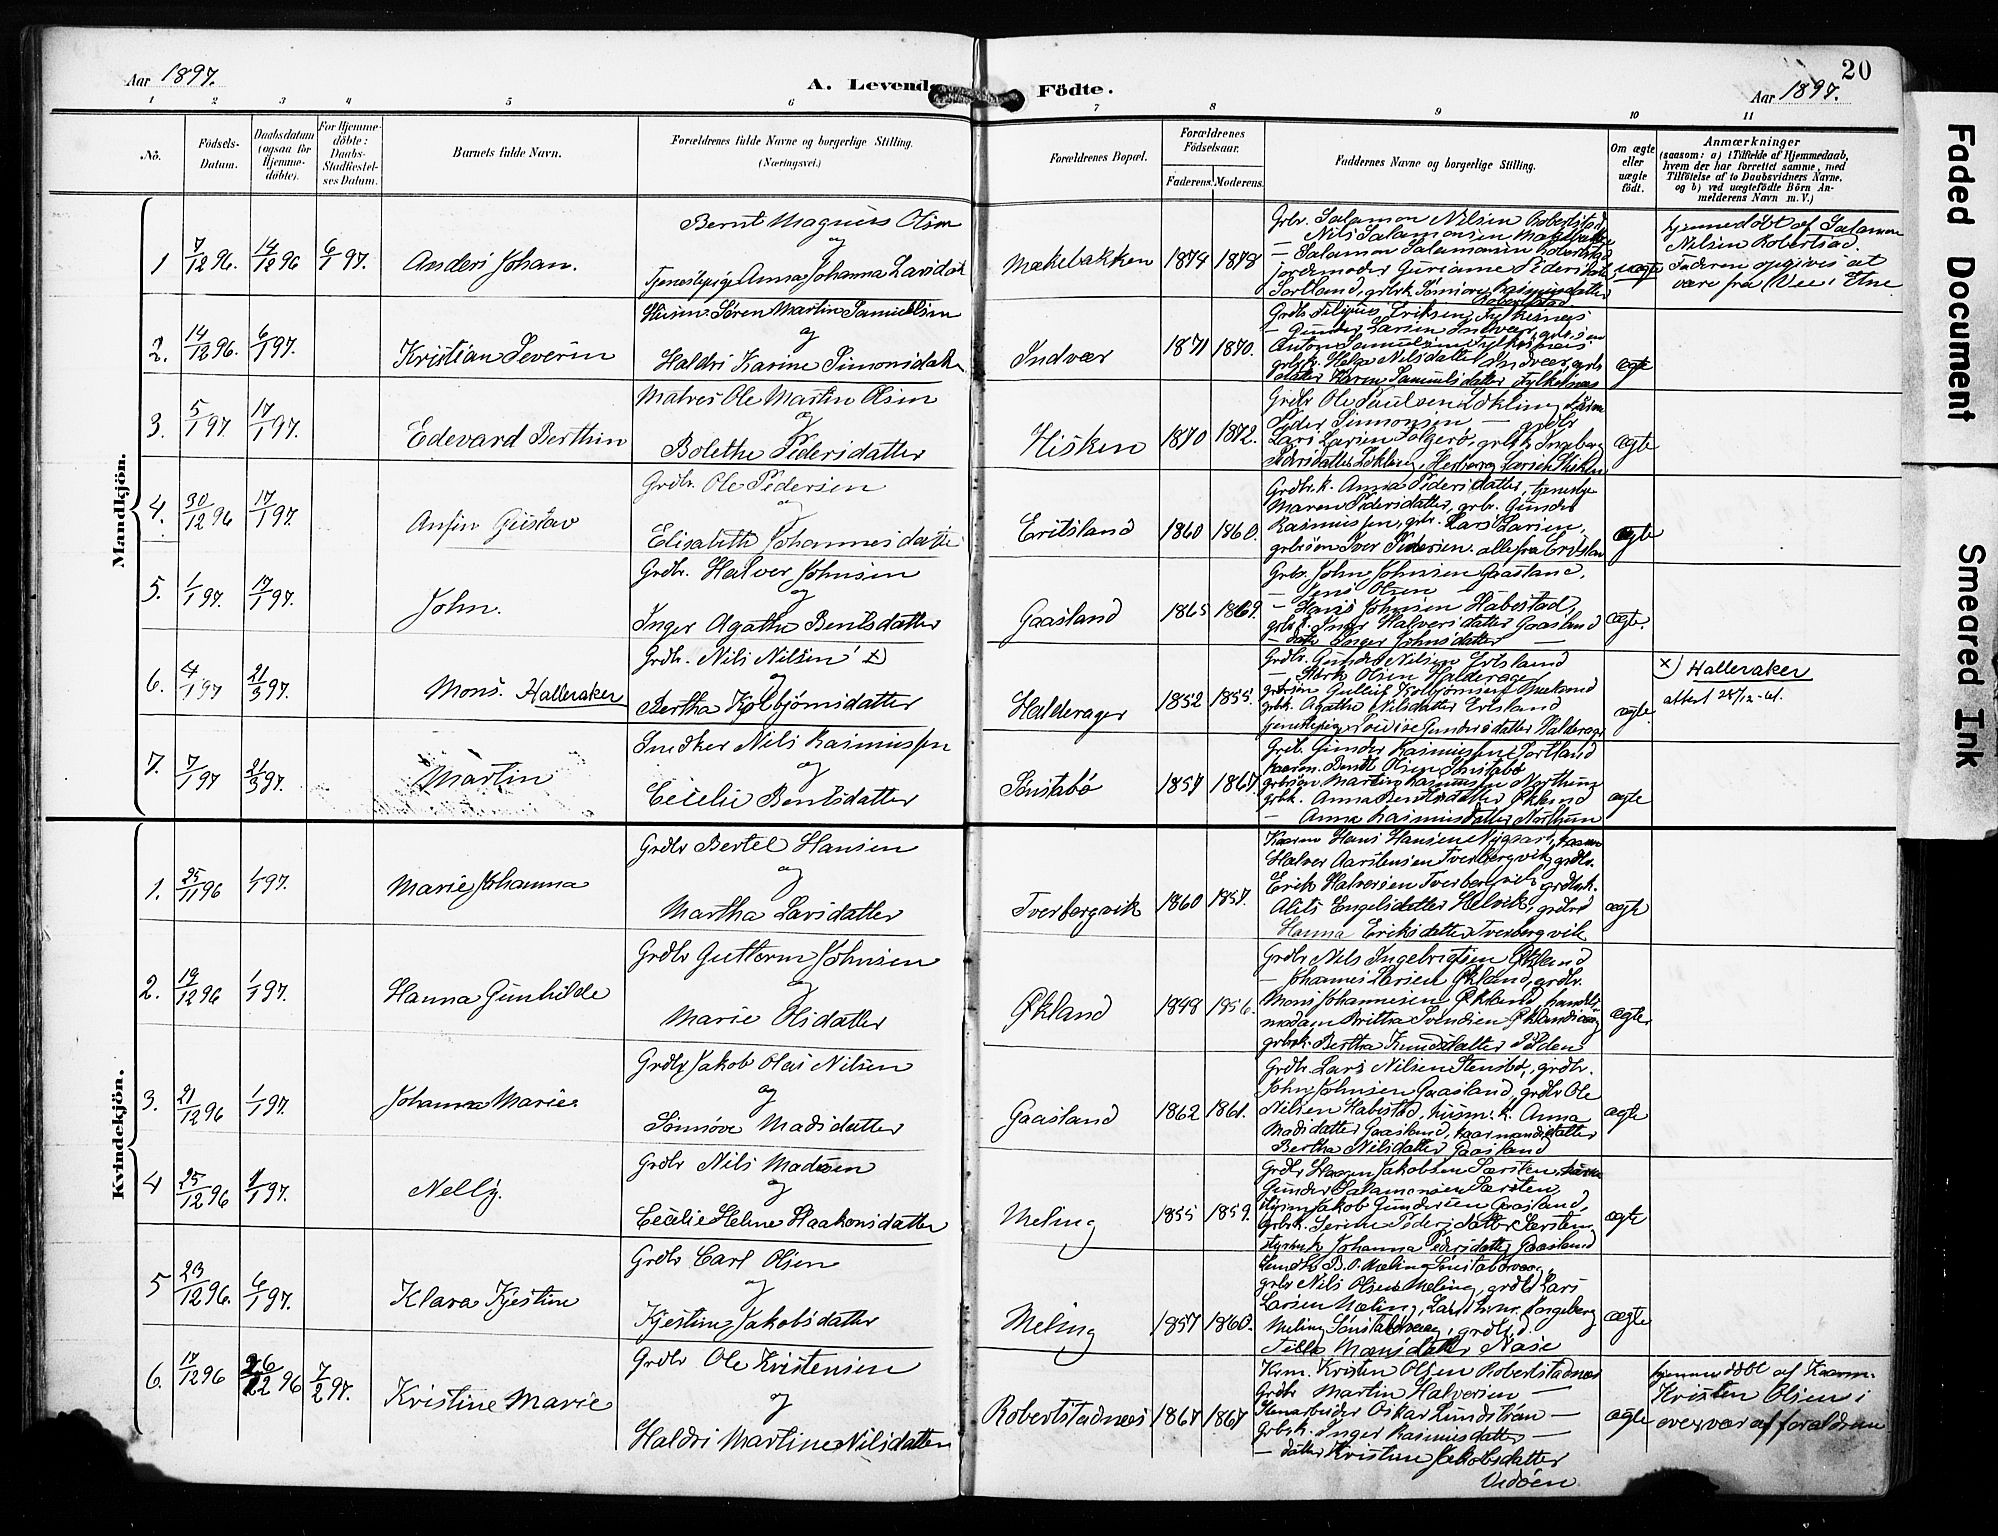 Aar 1897.
A. Levende Födte.
20
Aar 1897.
1 2 3 4 5 6 7 8 9 10 11
No.
Födsels-Datum.
Daabsdatum (ogsaa for Hjemme-döbte).
For Hjemme-döbte: Daabs-Stadfestel-ses Datum.
Barnets fulde Navn.
Forældrenes fulde Navne og borgerlige Stilling. (Næringsvei.)
Forældrenes Bopæl.
Forældrenes Födselsaar.
Faderens. Moderens.
Faddernes Navne og borgerlige Stilling.
Om ægte eller uægte født.
Anmærkninger
(saasom: a) i Tilfælde af Hjemmedaab,
hvem der har forrettet samme, med
Tilföielse af to Daabsvidners Navne.
og b) ved uægtefödte Börn An-
melderens Navn m. V.)
Mandkjön.
1 7/12 96. 14/12 96 6/1 97. Anders Johan.
Bernt Magnus Olsen
og
Tjenestepige Anna Johanna Larsdat
Mækebakken 1874 1878
Grbr. Salamon Nilsen Robertstad
— Nils Salamonsen Mækebakken
— Salamon Salamonsen Robertstad
jordemoder Gurianne Pedersdatter
Sortland, grbrk Rasmusdatter
Robertstad
uægte
hjemmedöbt af Salamon
Nilsen Robertstad.
Faderen opgives at
være fra Vee i Etne
2. 14/12 96. 6/1 97. Kristian Severin
Søren Martin Samuelsen
og
Haldri Karine Simonsdatter
Indvær 1871 1870.
Eriksen Fylkesnes
— Gunder Larsen Indvær
Anton Samuelsen Fylkesnes
Nilsdatter Indvær
datter Karen Samuelsdatter Fylkesnes
ægte
3. 5/1 97. 17/1 97. Edevard Berthin
Matros Ole Martin Olsen
og
Bolethe Pedersdatter
Hisken 1870 1872.
Grdbr Ole Paulsen Lökling
Peder Simonsen — grdbr
Lars Larsen Folgerø, grbrk Ingeborg
Pedersdatter Lökling, Herborg Larsen Hisken
ægte
4. 30/12 96 17/1 97. Anfin Gustav
Grdbr. Ole Pedersen
og
Elisabeth Johannesdatter
Eritsland 1860 1860.
Grdbr.k. Anna Pedersdatter, tjenestpe
Maren Pedersdatter, grbr. Gunder
Rasmussen, grbr. Lars Larsen,
grbrsøn Iver Pedersen. alle fra Eritsland
ægte
5. 1/1 97. 17/1 97. John.
Grdbr. Halver Johnsen
og
Inger Agathe Bentsdatter
Gaasland 1865 1869.
Grbr. John Johnsen Gaasland,
— Jens Olsen —
— Hans Johnsen Habestad,
grbrk. Inger Halversdatter Gaasland
— datr Inger Johnsdatter —
ægte.
6. 4/1 97 21/3 97. Mons. Halleraker
Grdbr. Nils Nilsen x)
og
Bertha Kolbjørnsdatter
Halderager 1852 1855.
Grdbr. Gunder Nilsen Ertsland
— Størk Olsen Halderager
grbrsøn Gulleif Kolbjørnsen
grbk. Agathe Nilsdatter Ertsland
tjenestepige Gundersdatter Halderager
ægte.
x) Halleraker
attest 28/12-41.
7. 7/1 97 21/3 97. Martin
Snedker Nils Rasmussen
og
Cecelie Bentsdatter
Sønstabø 1857 1867.
Grdb. Gunder Rasmussen Sortland
kaarm. Bendt Olsen Sønstabø
grbrsøn Martin Rasmussen Northun
grbk. Anna Bentsdatter Økland
— Anna Rasmusdatter Northun
ægte
Kvindekjön.
1. 25/11 96 1/1 97. Marie Johanna
Grdbr Bertel Hansen
og
Martha Larsdatter
Tverborgvik 1860 1857.
Kaarm Hans Hansen Nygaard, kaarm
Halver Aarstensen Tverborgvik, grdbr.
Erik Halvorsen Tverborgvik, grdbrk.
Alits Engelsdatter Helvik, grdbrd
Hanna Eriksdatter Tverborgvik
ægte
2. 19/12 96 1/1 97. Hanna Gunhilde
Grdbr Guttorm Johnsen
og
Marie Olsdatter
Økland 1848 1856.
Grdbr Nils Ingebrigtsen Økland
— Johannes Larsen Økland, grdbr.
Mons Johannesen Økland, handels-
madam Britha Svendsen Øklandsvaag
grbrk. Bertha Knudsdatter Folden
ægte
3. 21/12 96 1/1 97. Johanna Marie.
Grdbr Jakob Olai Nilsen
og
Sønnøve Madsdatter
Gaasland 1862 1861.
Grdbr. Lars Nilsen Stensbø, grdbr.
John Johnsen Gaasland, grdbr Ole
Nilsen Habestad, husm. k. Anna
Madsdatter Gaasland, kaarmandsdatter
Bertha Nilsdatter Gaasland
ægte
4 25/12 96 1/1 97. Nelly.
Grdbr Nils Madsen
og
Cecilie Helene Haakonsdatter
Meling 1855 1859.
Grdbr Haagen Jakobsen Særsten
Gunder Salamonsen Særsten
Jakob Gundersen Gaasland,
grbrk. Serine Pedersdatter Særsten
Johanna Pedersdatter Gaasland
ægte
5 23/12 96. 6/1 97. Klara Kjestine
Grdbr Carl Olsen
og
Kjestine Jakobsdatter
Meling 1857 1860.
B. O. Meling Sønstabøvaag,
grbr Nils Olsen Meling, grdbr Lars
Larsen Meling, Ingeborg
Meling Sønstabøvaag, grdbr. d.
Monsdatter Næse
ægte
6. 17/12 96 26/12 96 7/2 97. Kristine Marie
Grdbr Ole Kristensen
og
Haldri Martine Nilsdatter
Robertstadnes 1867 1867
Krm. Kristen Olsen Robertstadnes
Grdbr Martin Halversen —
Stenarbeider Oskar Lundstrøm —
Grbrk. Inger Rasmusdatter —
— datter Kristine Jakobsdatter
Vedøen
ægte
hjemmedöbt af Kaarm.
Kristen Olsen i
overvær af forældrene
Faded Document
Smeared Ink